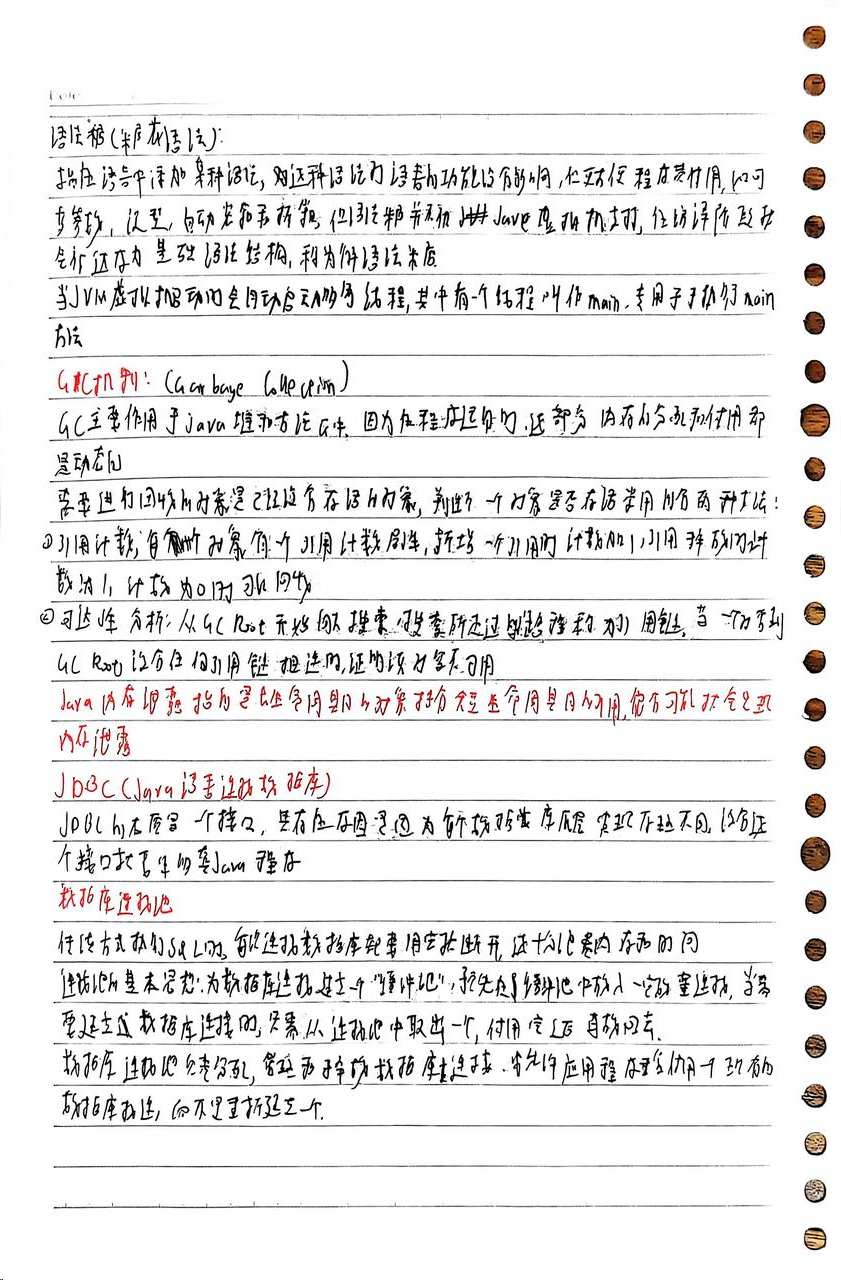 语法糖(糖衣语法):
指在语言中添加某种语法, 对这种语法对语言的功能没有影响, 但更方便程序员使用, 如可
变参数, 泛型, 自动装箱和拆箱. 但语法糖并不被 Java 虚拟机支持, 在编译阶段就
会被还原为基础语法结构, 称为解语法糖
当JVM虚拟机启动时会自动启动多个线程, 其中有一个线程叫作main. 专用于执行main
方法
GC机制: (Garbaye Collection)
GC主要作用于java堆和方法区中. 因为在程序运行时, 这部分内存的分配和使用都
是动态的
需要进行回收的对象是已经没有存活的对象, 判断一个对象是否存活常用的有两种方法:
①引用计数; 每个对象有一个引用计数属性, 新增一个引用时计数加1, 引用释放时计
数减1, 计数为0时可以回收
②可达性分析: 从GC Root开始向下搜索, 搜索所走过的路径称为引用链, 当一个对象到
GC Root没有任何引用链相连时, 证明该对象不可用
Java内存泄露指的是长生命周期的对象持有短生命周期的引用, 很有可能就会出现
内存泄露
JDBC(Java语言连接数据库)
JDBC的本质是一个接口, 其存在原因是因为每个数据库底层实现原理不同, 没有这
个接口就 Java程序
数据库连接池
传统方式执行SQL时, 每次连接数据库都要用完就断开, 这十分消耗内存和时间
连接池的基本思想: 为数据库连接建立一个"缓冲池", 预先在缓冲池中放入一定数量连接, 当需
要建立数据库连接时, 只需从连接池中取出一个, 使用完之后再放回去.
数据库连接池负责分配, 管理和释放数据库连接. 它允许应用程序重复使用一个现有的
数据库连接, 而不是重新建立一个.